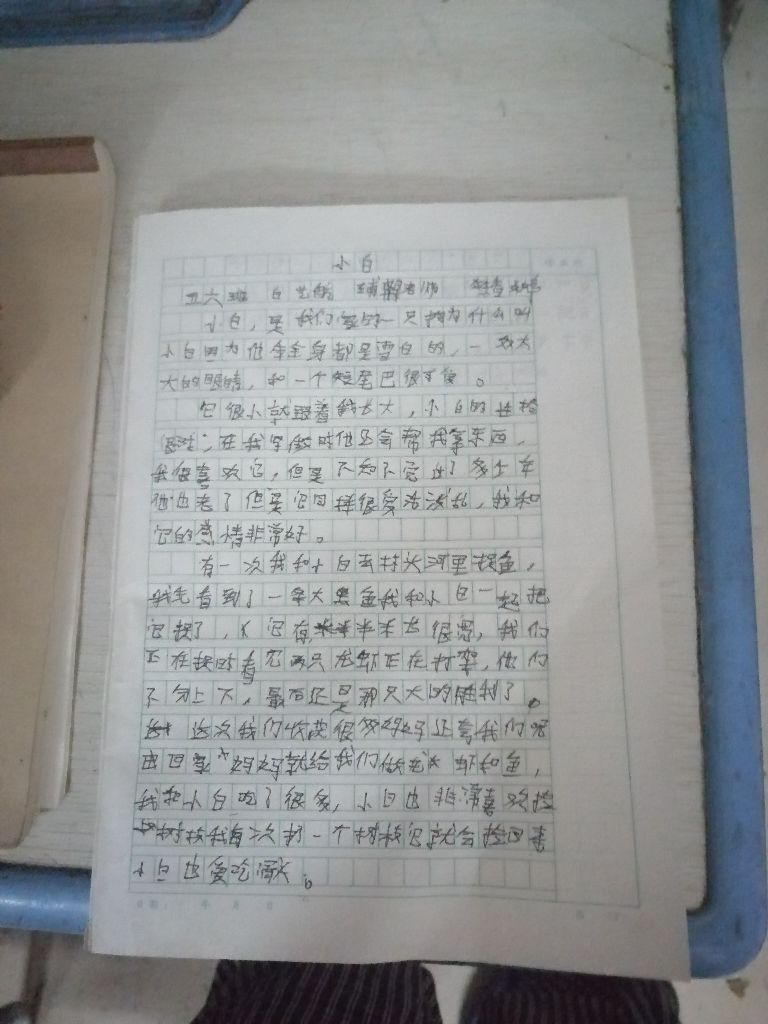 小白
五六班 白艺 辅导老师
小白，是我们家的一只狗为什么叫
小白因为他全身都是雪白的，一双大
大的眼睛，和一个短尾巴很可爱。
它很小就跟着我长大，小白的性格
在我写做时他还会帮我拿东西，
我很喜欢它，但是不知不觉过了多少年
他也老了但是它同样很爱活泼乱，我和
它的感情非常好。
有一次我和小白去村头河里摸鱼，
我先看到了一条大黑鱼我和小白一起把
它捉了，它有半米长很宽，我们
正在捉时看见两只龙虾正在打架，他们
不分上下，最后还是那只大的胜利了。
这次我们收获很多妈妈还夸我们呢
回家妈妈就给我们做龙虾和鱼，
我和小白吃了很多，小白也非常喜欢捡
树枝我每次扔一个树枝它就会捡回来
小白也爱吃骨头。